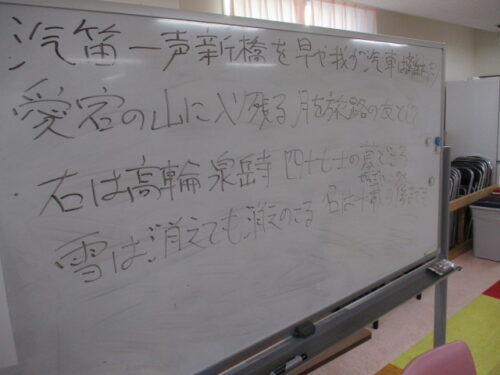 汽笛一声新橋を早や我が汽車は離れたり
愛宕の山に入残る月を旅路の友として
右は高輪泉岳寺 四十七士の墓どころ
雪は消えても消えのこる 名は千載の後までも